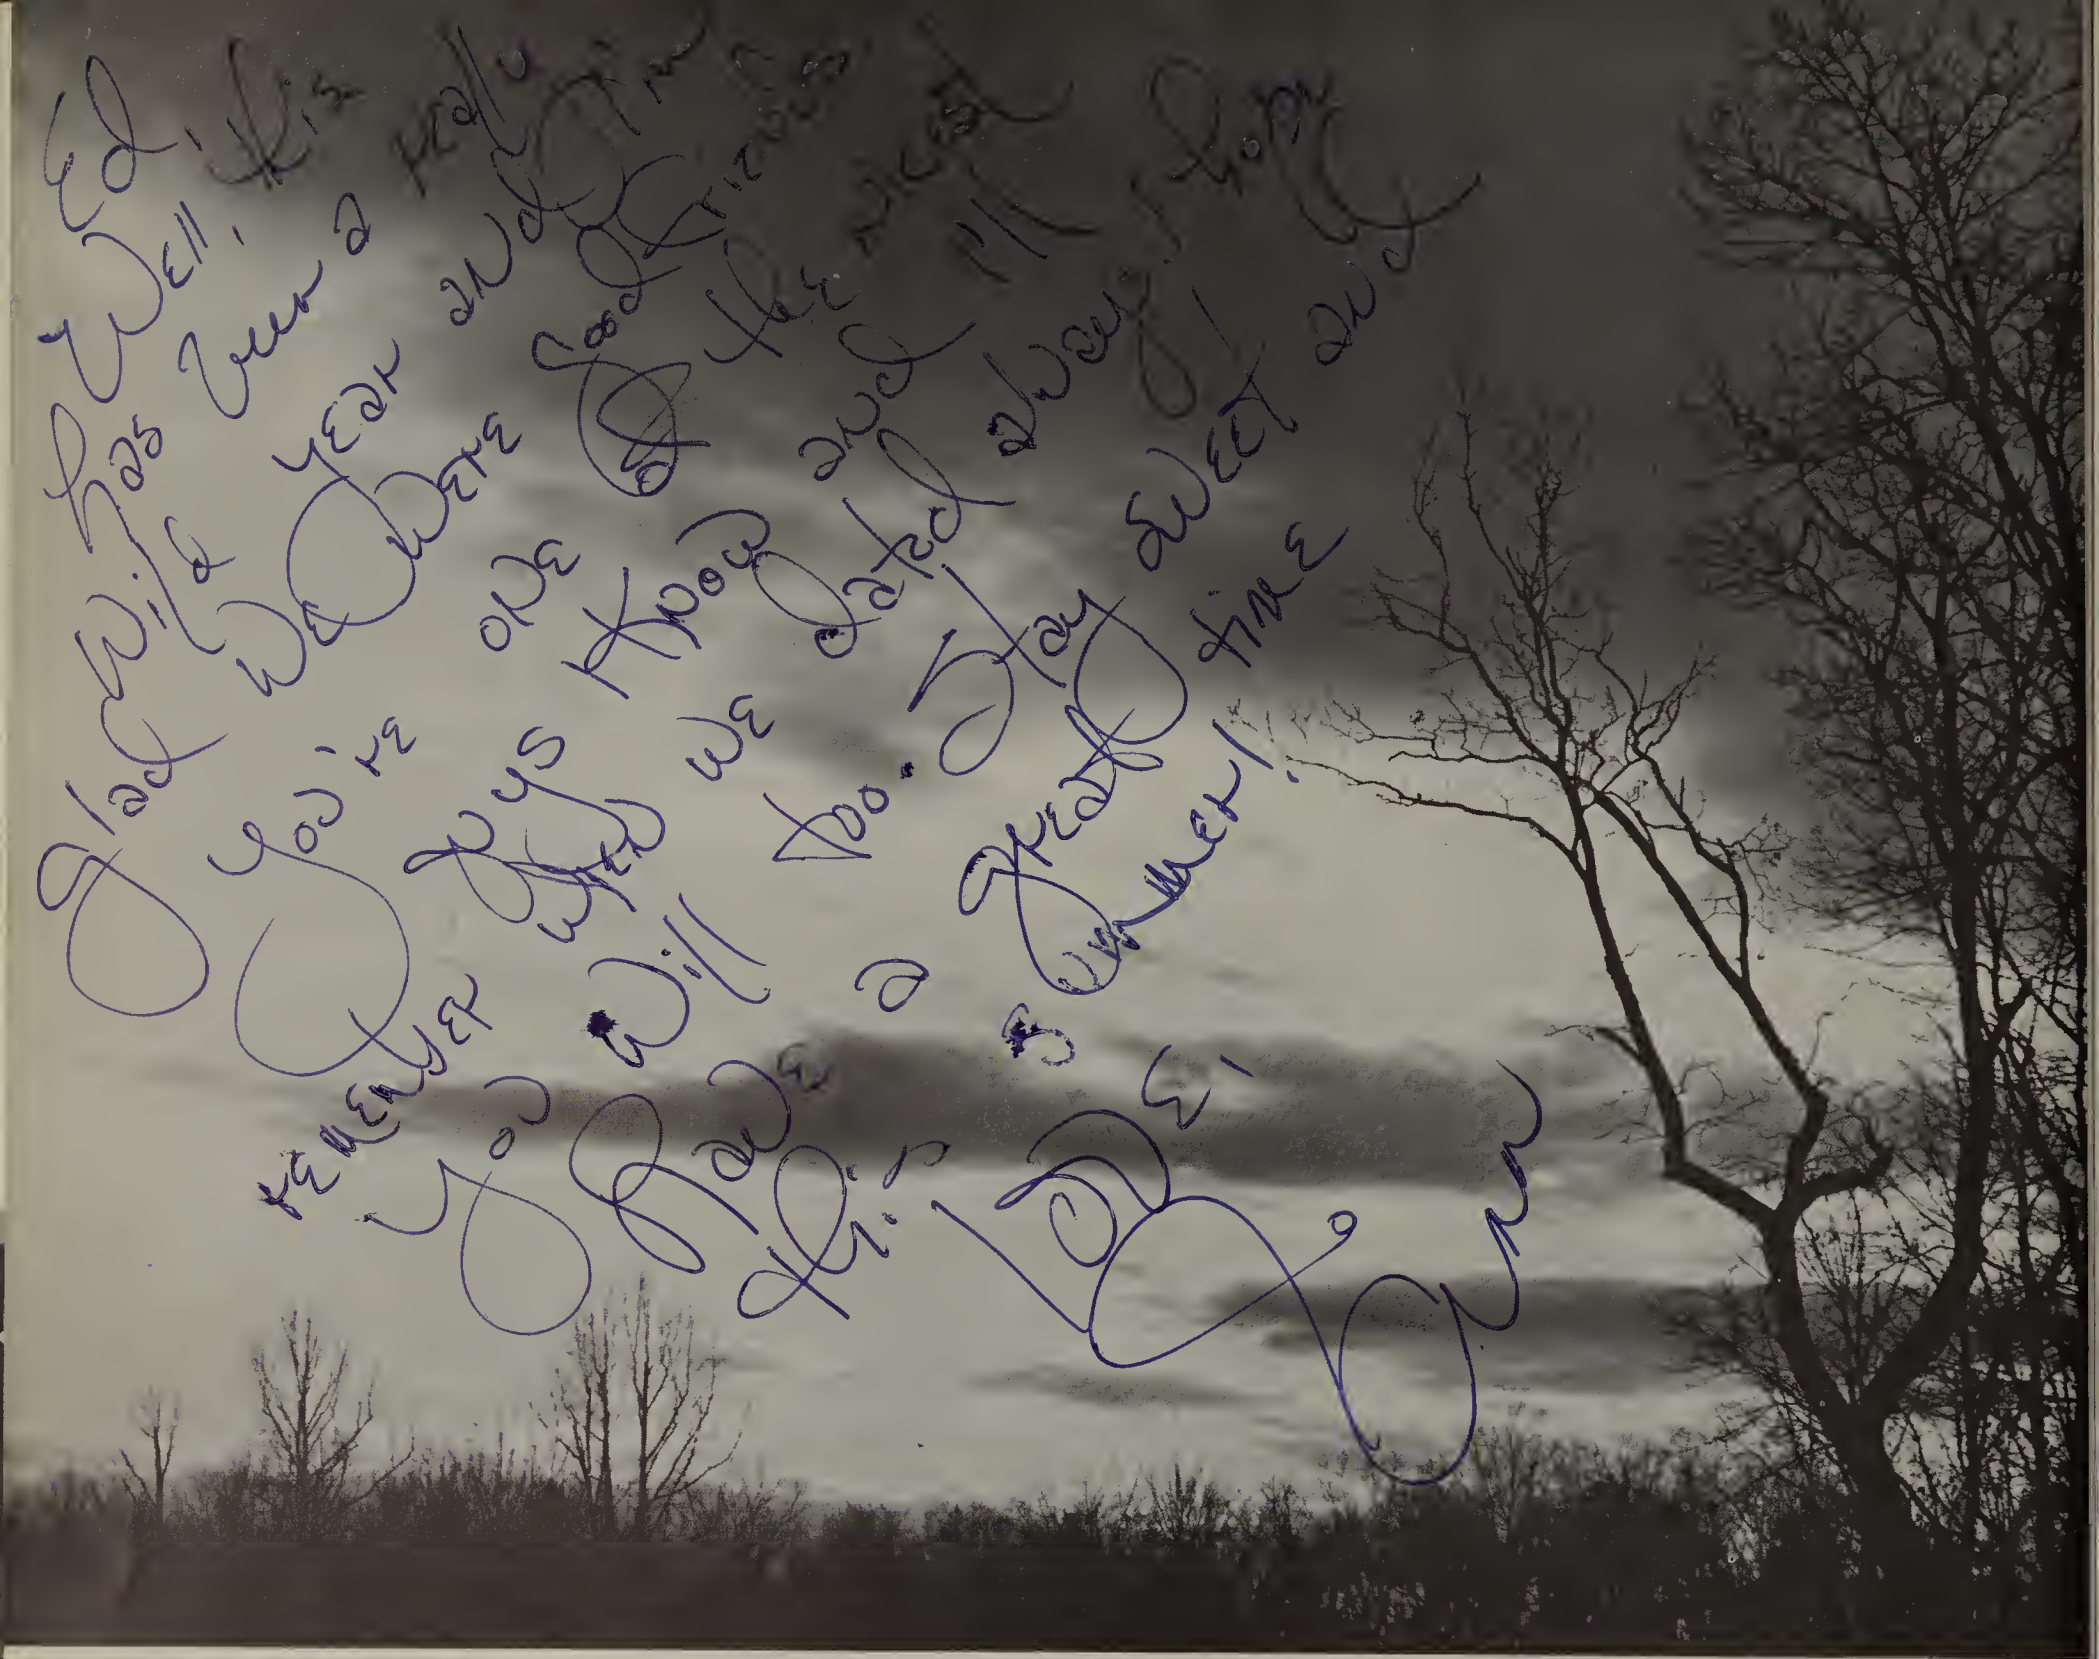 Ed,
Well, this
has been a really
wild year and I'm
glad we were good friends.
You're one of the nicest
guys I know and I'll
remember when we dated always, hope
you will too. Stay sweet and
have a great time
this summer!
Love,